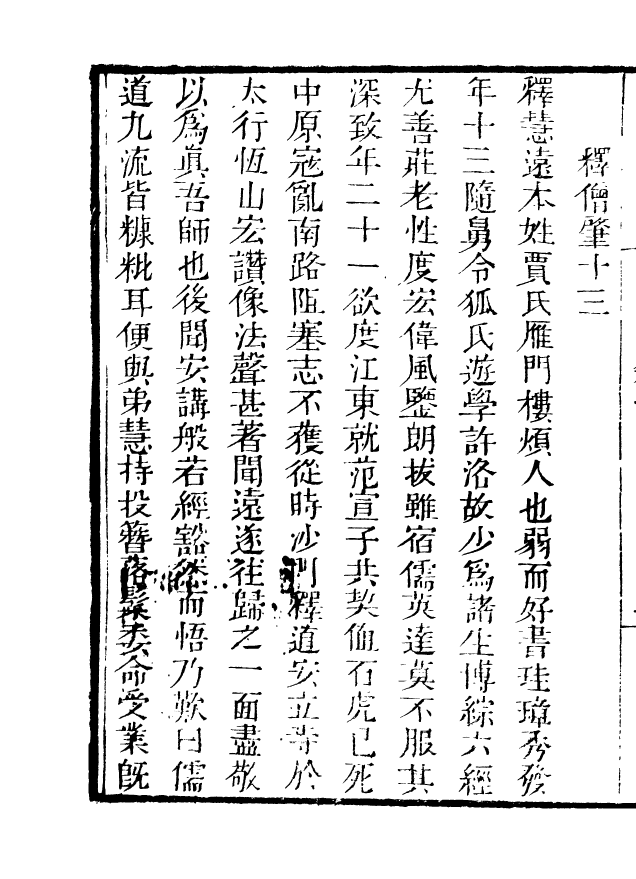 釋僧肇十三
釋慧遠本姓賈氏雁門樓煩人也弱而好書珪璋秀發
年十三隨舅令狐氏遊學許洛故少爲諸生博綜六經
尤善莊老性度宏偉風鑒朗拔雖宿儒英達莫不服其
深致年二十一欲度江東就范宣子共契值石虎已死
中原寇亂南路阻塞志不獲從時沙門釋道安立寺於
太行恆山宏讚像法聲甚著聞遠遂往歸之一面盡敬
以爲眞吾師也後聞安講般若經豁然而悟乃歎曰儒
道九流皆糠粃耳便與弟慧持投簪落髮委命受業旣